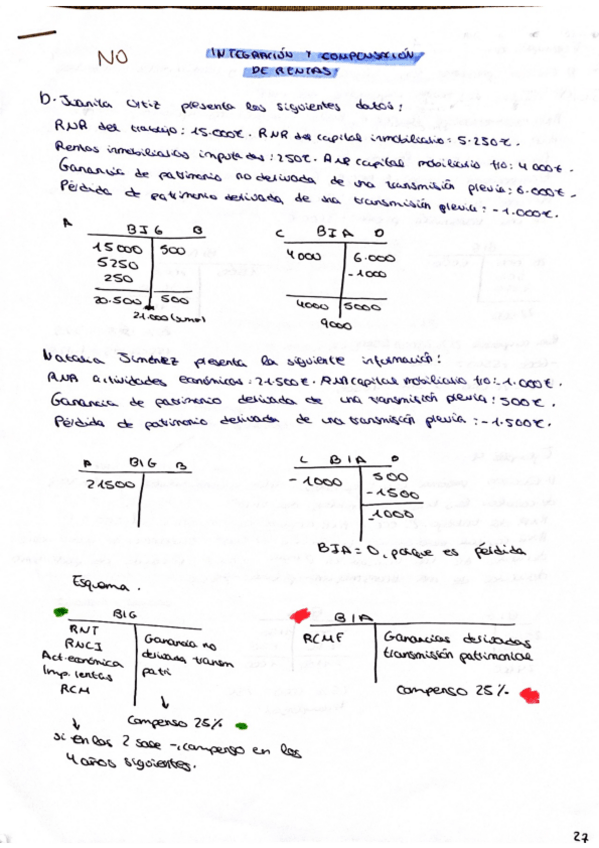 NO
INTEGRACIÓN Y COMPENSACIÓN
DE RENTAS
D. Juanita Ortiz presenta los siguientes datos:
RNR del trabajo: 15.000€. RNR del capital inmobiliario: 5.250€.
Rentas inmobiliarias imputadas: 250€. RNR capital mobiliario f10: 4000€.
Ganancia de patrimonio no derivada de una transmisión previa: 6.000€.
Pérdida de patrimonio derivada de una transmisión previa: -1.000€.
A BIG B
15000 500
5250
250
20.500 500
21.000 (suma)
C BIA D
4000 6.000
-1000
4000 5000
9000
Natalia Jiménez presenta la siguiente información:
RNR actividades económicas: 21.500€. RNR capital mobiliario f10: -1.000€.
Ganancia de patrimonio derivada de una transmisión previa: 500€.
Pérdida de patrimonio derivada de una transmisión previa: -1.500€.
A BIG B
21500
C BIA D
-1000 500
-1500
-1000
BIA = 0, porque es pérdida
Esquema.
BIG
RNT
RNCI
Act. económica
Imp. rentas
RCM
Ganancia no
derivada transm
patri
Compenso 25%
si en los 2 sale -, compenso en los
4 años siguientes.
BIA
RCMF
Ganancias derivadas
transmisión patrimonial
Compenso 25%
27